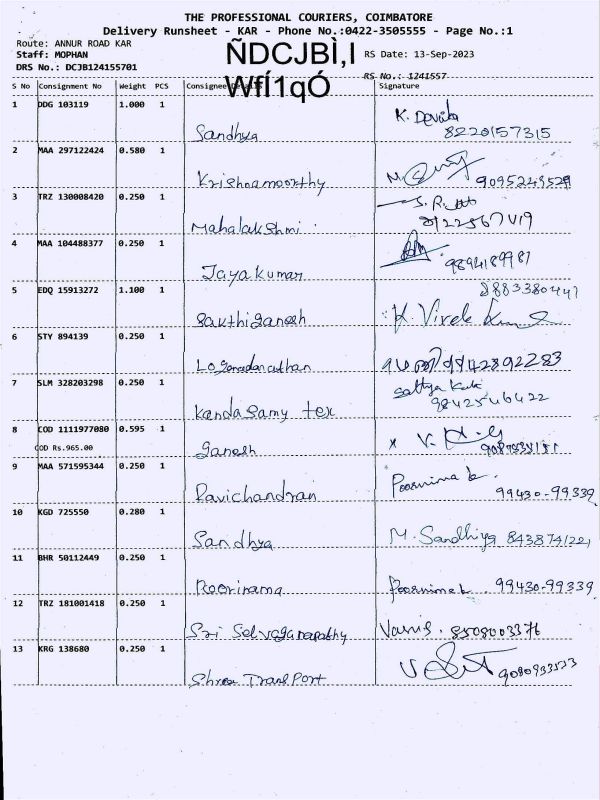 THE PROFESSIONAL COURIERS, COIMBATORE
Delivery Runsheet - KAR - Phone No.:0422-3505555 - Page No.:1
Route: ANNUR ROAD KAR
Staff: MOPHAN
DRS No.: DCJB124155701
ÑDCJBÌ,I
WfÍ1qÓ
RS Date: 13-Sep-2023
RS No.: 1241557
S No Consignment No Weight PCS Consignee Details Signature
1 DDG 103119 1.000 1 K. Devika
Sandhya 8220157315
2 MAA 297122424 0.580 1
Krishnamoorthy 9095249529
3 TRZ 130008420 0.250 1
Mahalakshmi
4 MAA 104488377 0.250 1
Jayakumar 9894189981
5 EDQ 15913272 1.100 1 8883380441
Sakthiganesh K. Vivek Kumar
6 STY 894139 0.250 1
9942892283
7 SLM 328203298 0.250 1 Sathya
Kandasamy tex 9842546422
8 COD 1111977080 0.595 1
COD Rs.965.00 Ganesh
9 MAA 571595344 0.250 1 Poornima k.
Ravichandran 99430-99339
10 KGD 725550 0.280 1
Sandhya M. Sandhiya 843874122
11 BHR 50112449 0.250 1
Poornima k. 99430-99339
12 TRZ 181001418 0.250 1
Sri Selvaganapathy 8508003376
13 KRG 138680 0.250 1
Shree Transport 9080933523